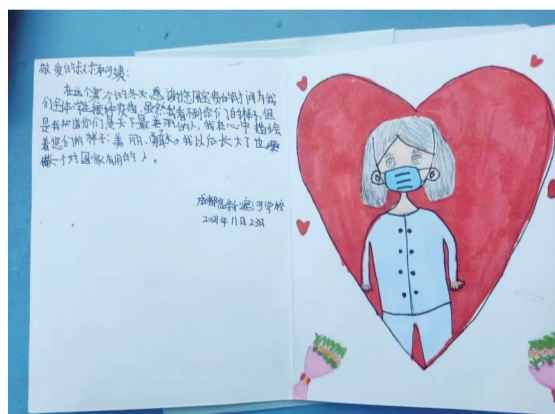 敬爱的叔叔和阿姨:
在这个寒冷的冬天,感谢您用宝贵的时间为我
们全体学生接种疫苗,虽然我看不到你们的样子,但
是我知道你们是天下最美丽的人,我在心中描绘
着您们的样子:美丽、。我以后长大了也要
做一个对国家有用的人。
成都高新滨河学校
2021年11月23日